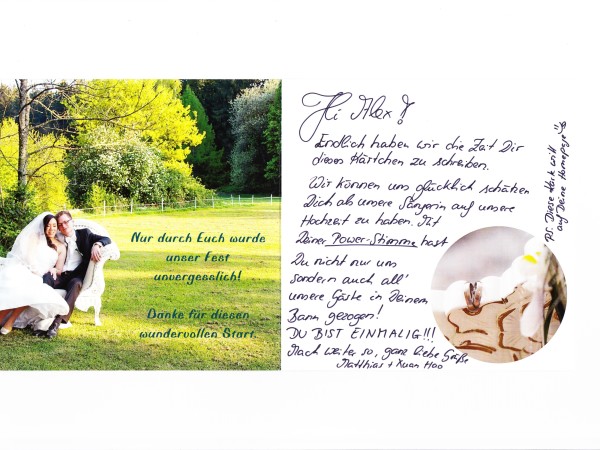 Nur durch Euch wurde
unser Fest
unvergesslich!
Danke für diesen
wundervollen Start.
Hi Alex!
Endlich haben wir die Zeit Dir
dieses Kärtchen zu schreiben.
Wir können uns glücklich schätzen
Dich als unsere Sängerin auf unsere
Hochzeit zu haben. Mit
Deiner Power-Stimme hast
Du nicht nur uns
sondern auch all'
unsere Gäste in Deinem
Bann gezogen!
DU BIST EINMALIG!!!
Mach weiter so, ganz liebe Grüße
Matthias + Xuan Hoa
PS: Diese Karte will
auf Deine Homepage